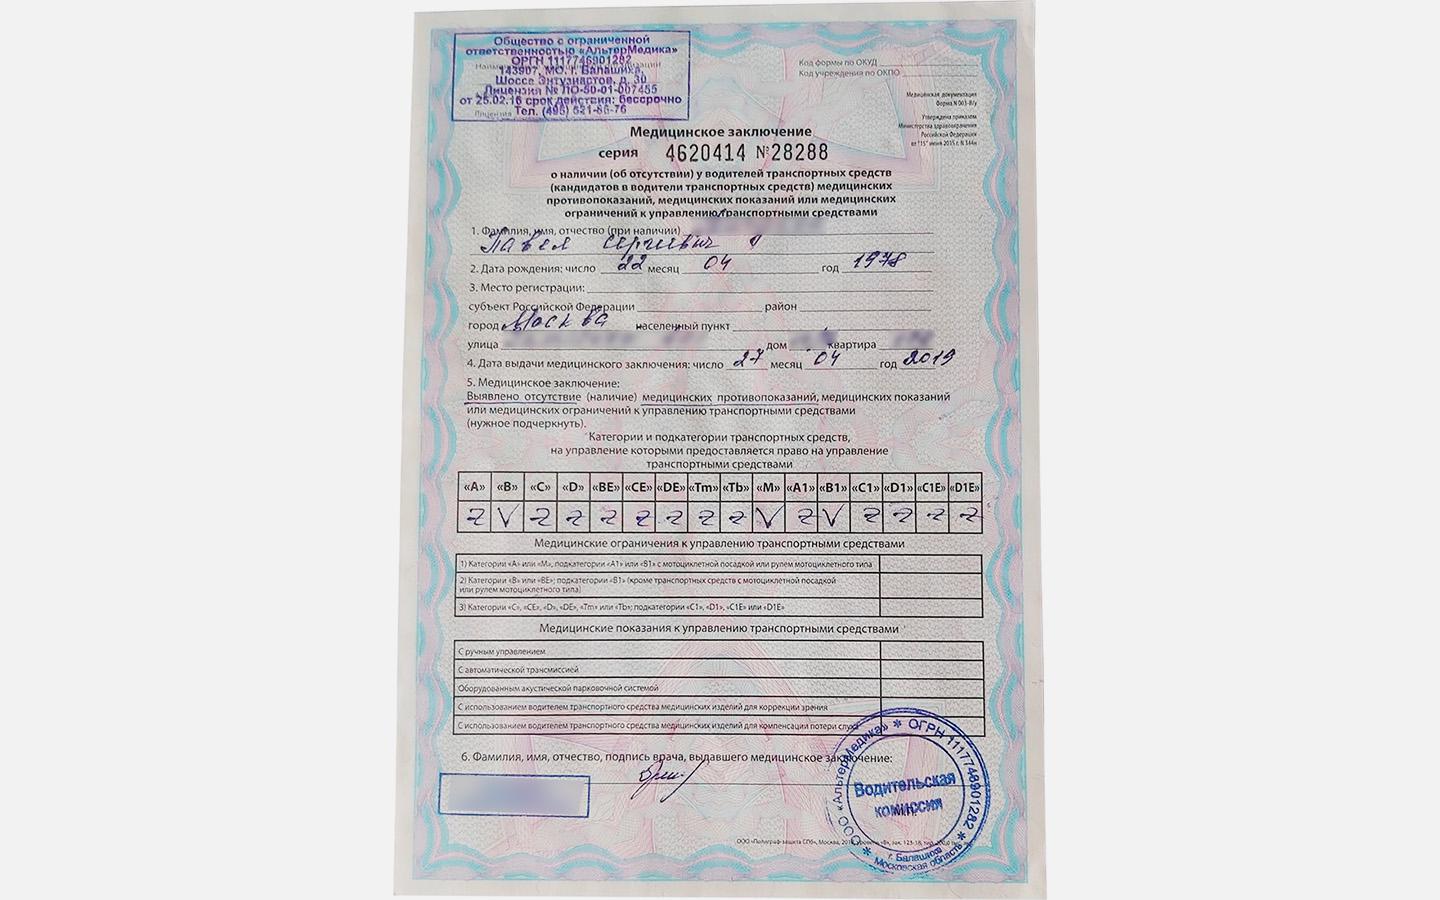 Общество с ограниченной
ответственностью «АльтерМедика»
ОРГН 1117746901282
143907, МО, г. Балашиха,
Шоссе Энтузиастов, д. 30
Лицензия № ЛО-50-01-007455
от 25.02.16 срок действия: бессрочно
Тел. (495) 521-86-76
Код формы по ОКУД
Код учреждения по ОКПО
Медицинская документация
Форма N 003-В/у
Утверждена приказом
Министерства здравоохранения
Российской Федерации
от "15" июня 2015 г. N 344н
Медицинское заключение
серия 4620414 №28288
о наличии (об отсутствии) у водителей транспортных средств
(кандидатов в водители транспортных средств) медицинских
противопоказаний, медицинских показаний или медицинских
ограничений к управлению транспортными средствами
1. Фамилия, имя, отчество (при наличии)
Павел Сергиевич
2. Дата рождения: число 22 месяц 04 год 1978
3. Место регистрации:
субъект Российской Федерации район
город Москва населенный пункт
улица дом квартира
4. Дата выдачи медицинского заключения: число 27 месяц 04 год 2019
5. Медицинское заключение:
Выявлено отсутствие (наличие) медицинских противопоказаний, медицинских показаний
или медицинских ограничений к управлению транспортными средствами
(нужное подчеркнуть).
Категории и подкатегории транспортных средств,
на управление которыми предоставляется право на управление
транспортными средствами
«A» «B» «C» «D» «BE» «CE» «DE» «Tm» «Tb» «M» «A1» «B1» «C1» «D1» «C1E» «D1E»
Z V Z Z Z Z Z Z Z V Z V Z Z Z Z
Медицинские ограничения к управлению транспортными средствами
1) Категории «A» или «M», подкатегории «A1» или «B1» с мотоциклетной посадкой или рулем мотоциклетного типа
2) Категории «B» или «BE»; подкатегории «B1» (кроме транспортных средств с мотоциклетной посадкой
или рулем мотоциклетного типа)
3) Категории «C», «CE», «D», «DE», «Tm» или «Tb»; подкатегории «C1», «D1», «C1E» или «D1E»
Медицинские показания к управлению транспортными средствами
С ручным управлением
С автоматической трансмиссией
Оборудованным акустической парковочной системой
С использованием водителем транспортного средства медицинских изделий для коррекции зрения
С использованием водителем транспортного средства медицинских изделий для компенсации потери слуха
6. Фамилия, имя, отчество, подпись врача, выдавшего медицинское заключение:
ООО «АльтерМедика» * ОГРН 1117748901282 *
Водительская
комиссия
г. Балашиха
Московская область
ООО «Полиграф-защита СПб», Москва,